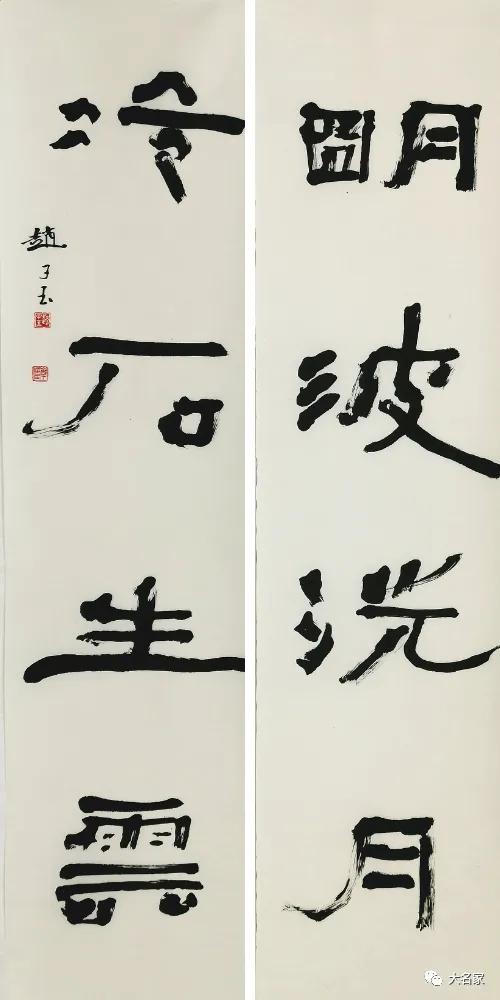 明波洗月
冷石生雲
趙子玉
大名家